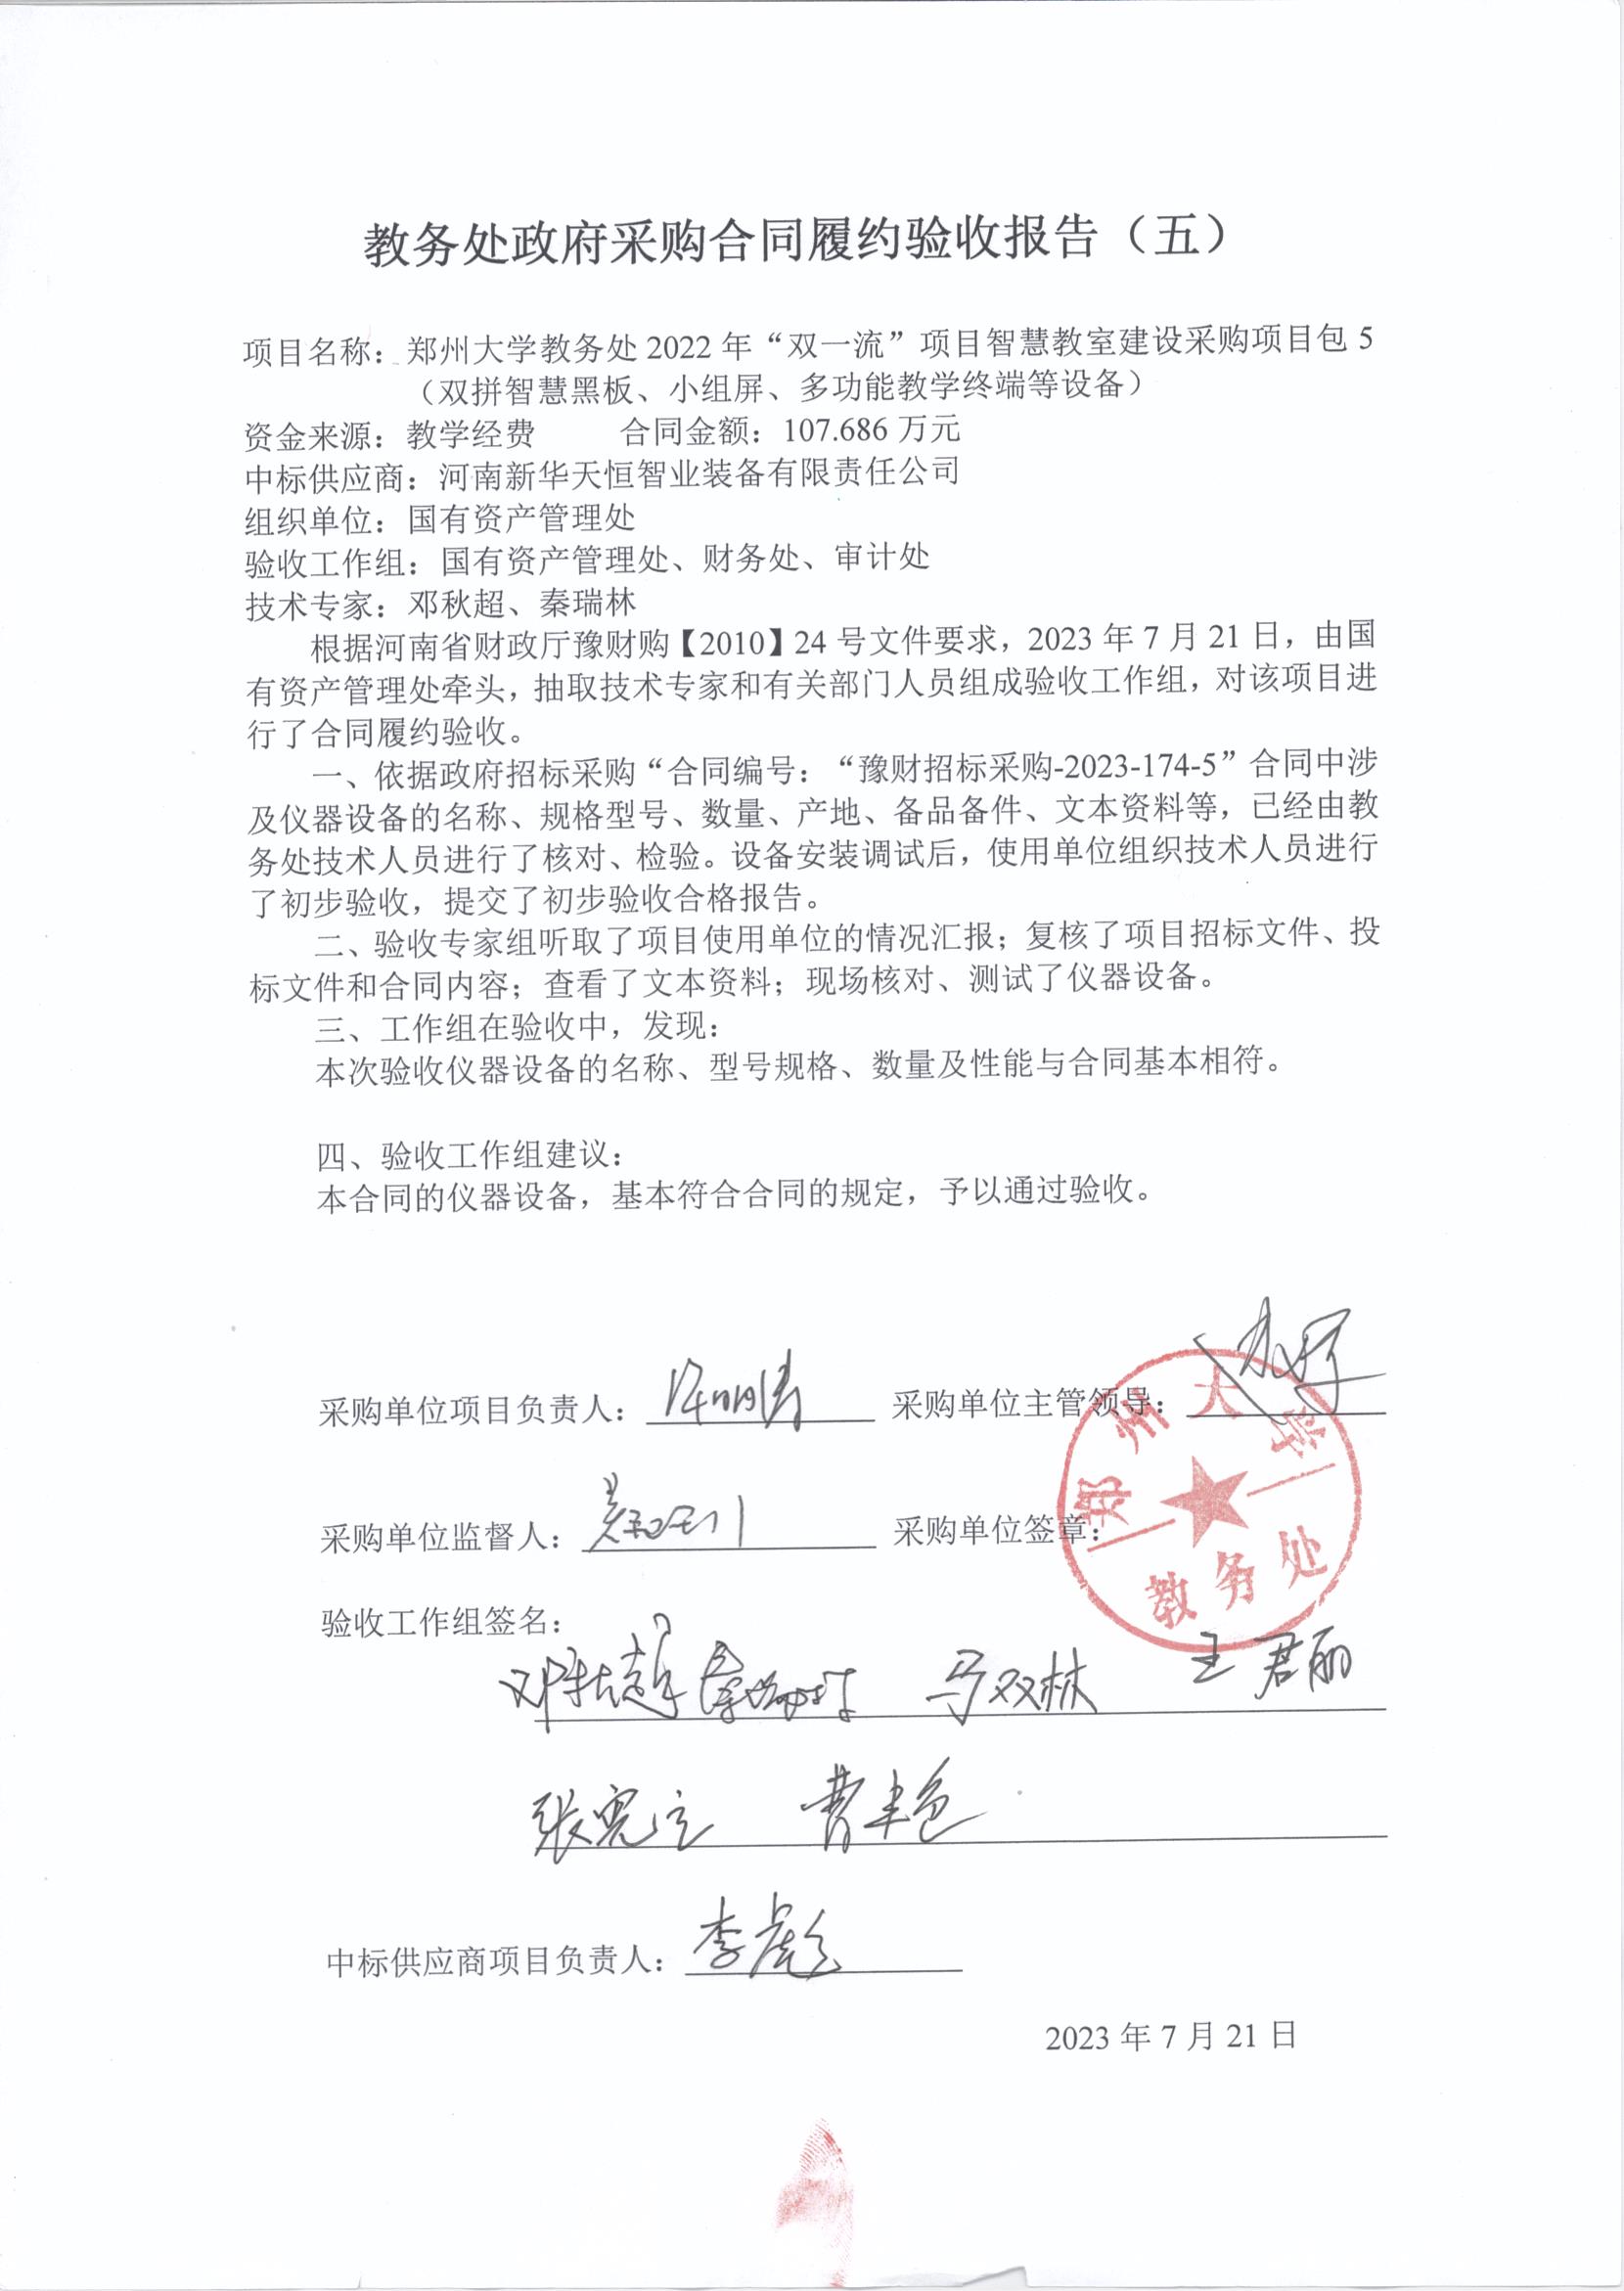 教务处政府采购合同履约验收报告（五）
项目名称：郑州大学教务处 2022 年“双一流”项目智慧教室建设采购项目包 5
（双拼智慧黑板、小组屏、多功能教学终端等设备）
资金来源：教学经费 合同金额：107.686 万元
中标供应商：河南新华天恒智业装备有限责任公司
组织单位：国有资产管理处
验收工作组：国有资产管理处、财务处、审计处
技术专家：邓秋超、秦瑞林
根据河南省财政厅豫财购【2010】24 号文件要求，2023 年 7 月 21 日，由国
有资产管理处牵头，抽取技术专家和有关部门人员组成验收工作组，对该项目进
行了合同履约验收。
一、依据政府招标采购“合同编号：“豫财招标采购-2023-174-5”合同中涉
及仪器设备的名称、规格型号、数量、产地、备品备件、文本资料等，已经由教
务处技术人员进行了核对、检验。设备安装调试后，使用单位组织技术人员进行
了初步验收，提交了初步验收合格报告。
二、验收专家组听取了项目使用单位的情况汇报；复核了项目招标文件、投
标文件和合同内容；查看了文本资料；现场核对、测试了仪器设备。
三、工作组在验收中，发现：
本次验收仪器设备的名称、型号规格、数量及性能与合同基本相符。
四、验收工作组建议：
本合同的仪器设备，基本符合合同的规定，予以通过验收。
采购单位项目负责人： 采购单位主管领导：
采购单位监督人： 采购单位签章：
郑州大学
教务处
验收工作组签名：
邓秋超 秦瑞林 马双林 王君丽
张宪立 曹丰色
中标供应商项目负责人：李彪
2023 年 7 月 21 日